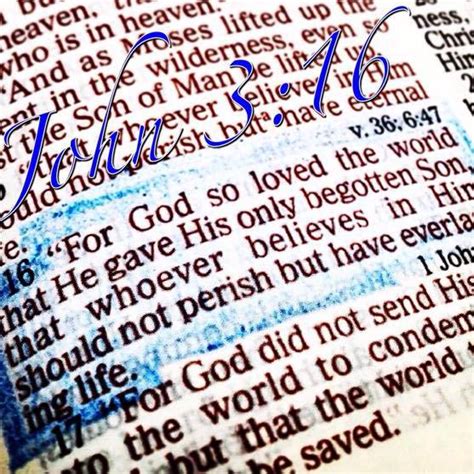 John 3:16
heaven,
who is in heaven.
"And as Moses lifted up the
ent in the wilderness, even so
st the Son of Man be lifted up,
whoever believes in Him
ould not perish but have eternal
fe.
v. 36; 6:47
16 "For God so loved the world
that He gave His only begotten Son,
that whoever believes in Him
should not perish but have everla
1 Joh
ing life.
17 "For God did not send Hi
to the world to conden
but that the world
be saved.
ness,
Chris
Him